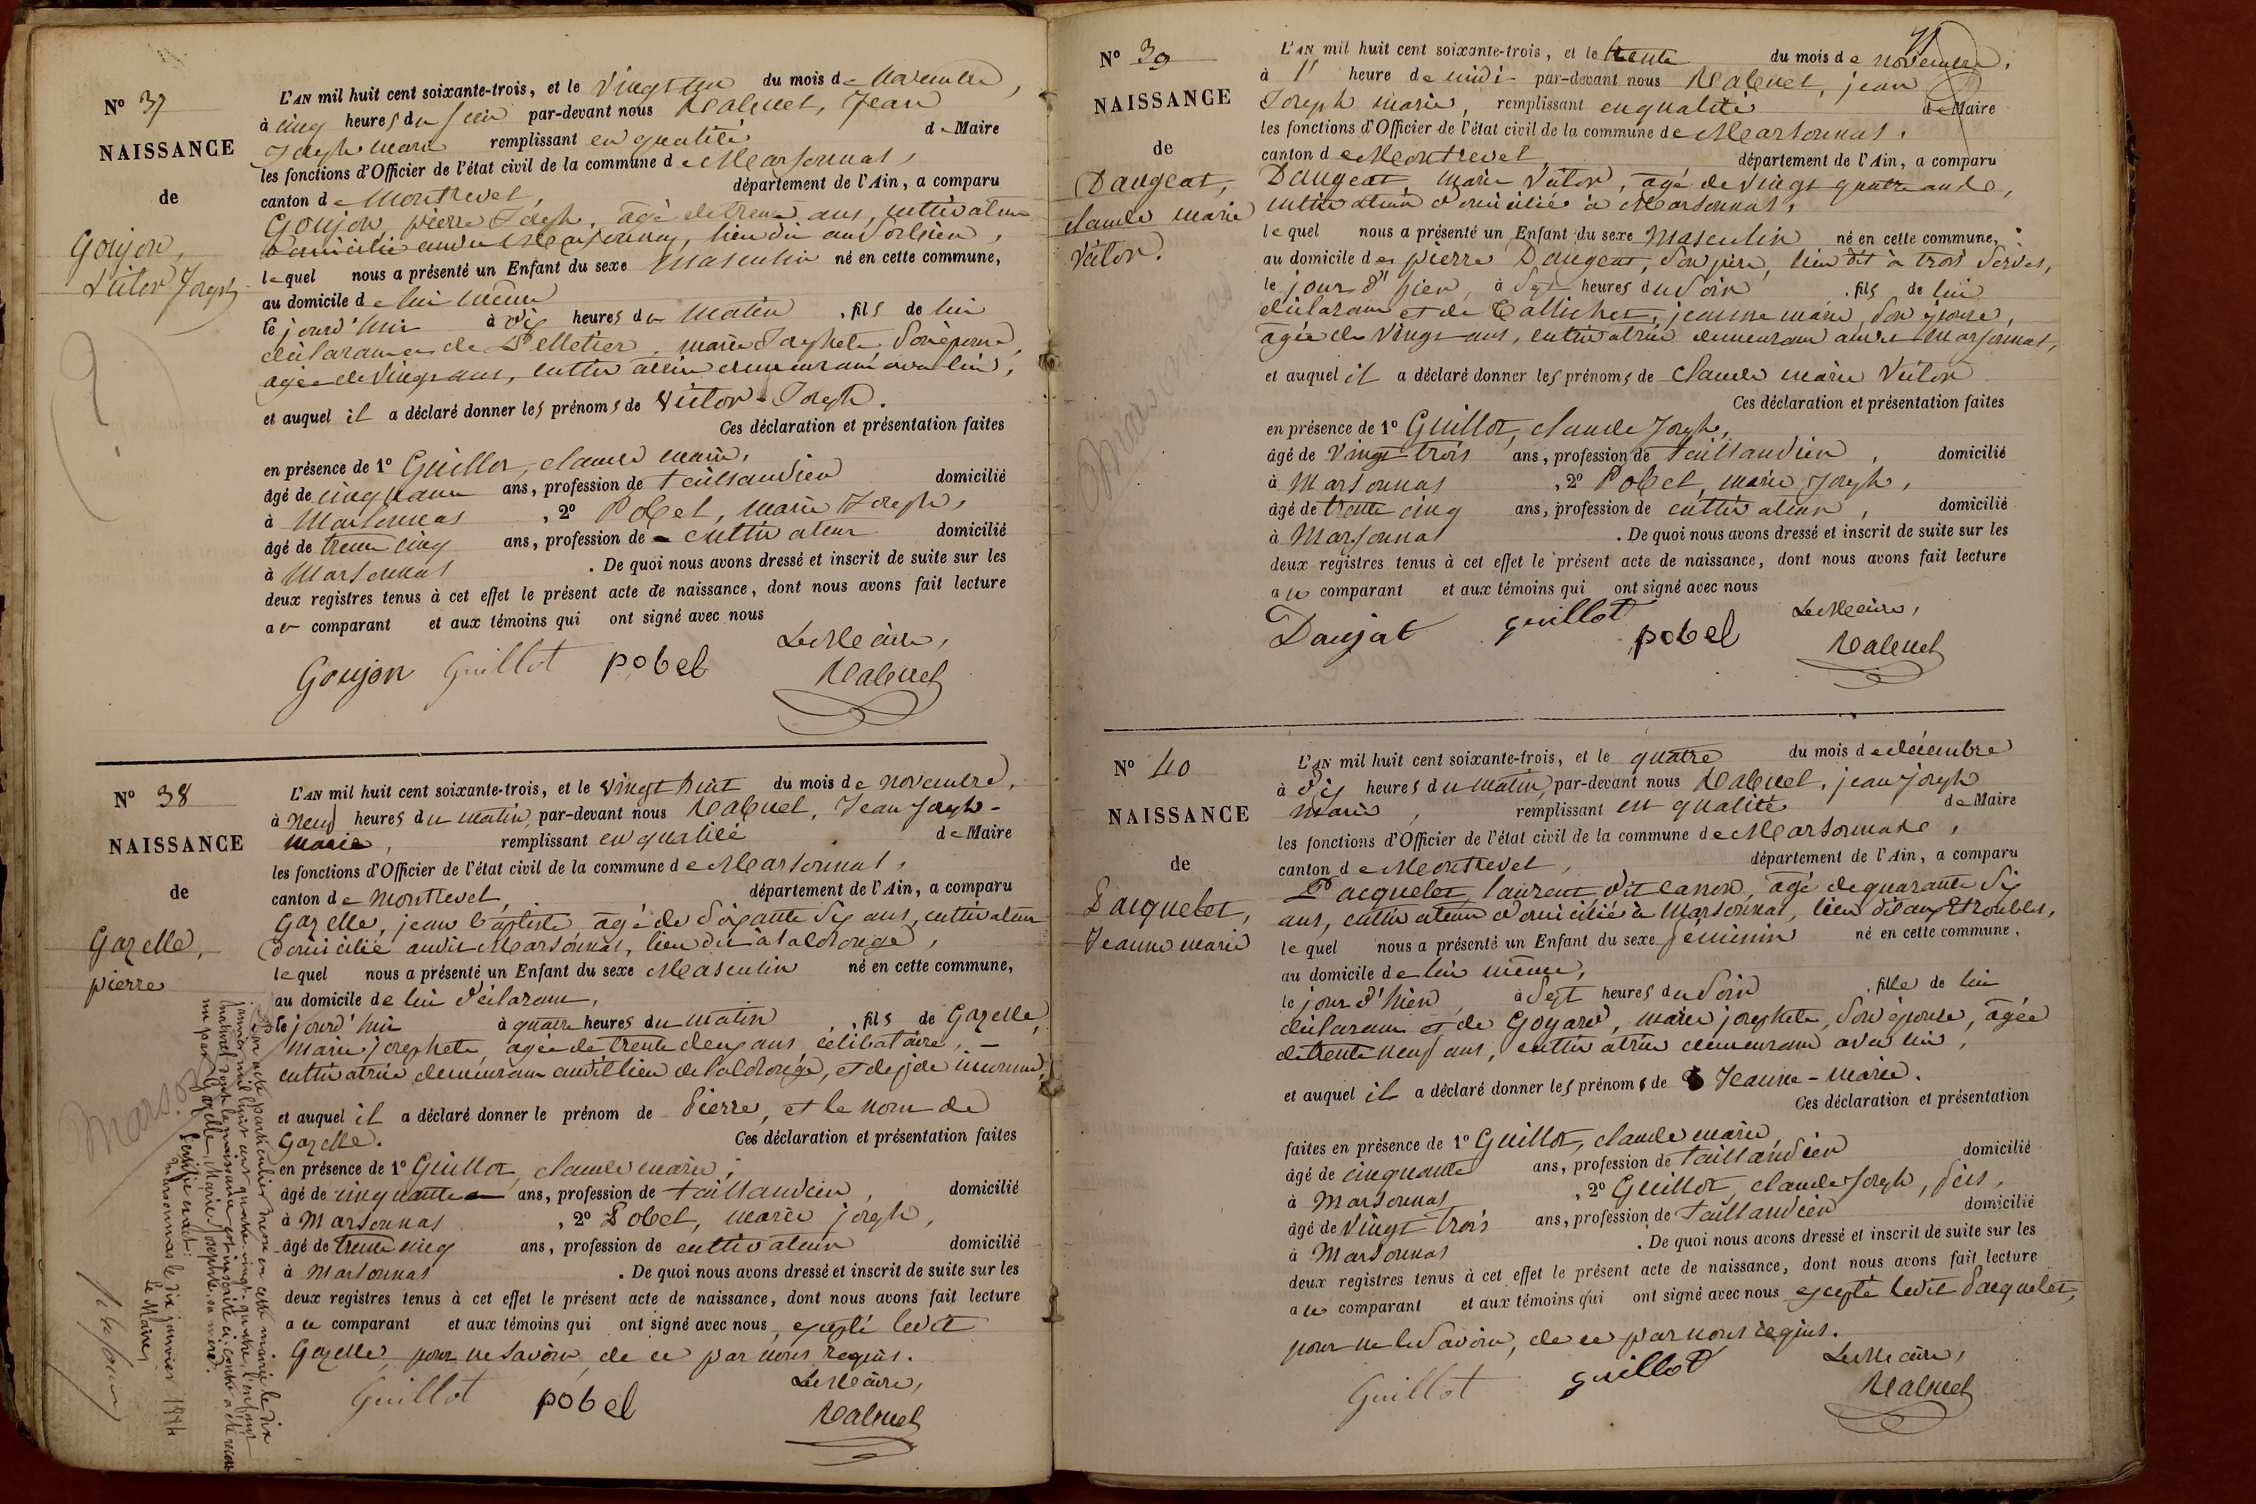 N° 37
NAISSANCE
de
Goujon,
Victor Joseph
L'AN mil huit cent soixante-trois, et le vingt un du mois de novembre,
à cinq heures du soir par-devant nous Rabuel, Jean
Joseph marie remplissant en qualité de Maire
les fonctions d'Officier de l'état civil de la commune de Marsonnas,
canton de Montrevel, département de l'Ain, a comparu
Goujon, pierre Joseph, agé de trente ans, cultivateur
domicilié audit Marsonnas, lieu dit au
lequel nous a présenté un Enfant du sexe masculin né en cette commune,
au domicile de lui même
le jourd'hui à dix heures du matin, fils de lui
déclarant et de Pelletier, marie Josephete son épouse,
agée de vingt ans, cultivatrice demeurant avec lui,
et auquel il a déclaré donner les prénoms de Victor-Joseph.
Ces déclaration et présentation faites
en présence de 1° Guillot, claude marie,
âgé de cinquante ans, profession de taillandier domicilié
à Marsonnas, 2° Pobel, marie Joseph,
âgé de trente cinq ans, profession de cultivateur domicilié
à Marsonnas. De quoi nous avons dressé et inscrit de suite sur les
deux registres tenus à cet effet le présent acte de naissance, dont nous avons fait lecture
au comparant et aux témoins qui ont signé avec nous
Le Maire,
Goujon Guillot pobel Rabuel
N° 38
NAISSANCE
de
Gazelle,
pierre
L'AN mil huit cent soixante-trois, et le vingt huit du mois de novembre,
à neuf heures du matin, par-devant nous Rabuel, Jean Joseph-
marie, remplissant en qualité de Maire
les fonctions d'Officier de l'état civil de la commune de Marsonnas,
canton de Montrevel, département de l'Ain, a comparu
Gazelle, jean baptiste, agé de soixante six ans, cultivateur
domicilié audit Marsonnas, lieu dit à
lequel nous a présenté un Enfant du sexe Masculin né en cette commune,
au domicile de lui déclarant,
le jourd'hui à quatre heures du matin, fils de Gazelle,
marie josephete, agée de trente deux ans, célibataire, -
cultivatrice demeurant audit lieu de, et de père inconnu,
et auquel il a déclaré donner le prénom de Pierre, et le nom de
Gazelle. Ces déclaration et présentation faites
en présence de 1° Guillot, claude marie,
âgé de cinquante ans, profession de taillandier, domicilié
à Marsonnas, 2° Pobel, marie joseph,
âgé de trente cinq ans, profession de cultivateur domicilié
à Marsonnas. De quoi nous avons dressé et inscrit de suite sur les
deux registres tenus à cet effet le présent acte de naissance, dont nous avons fait lecture
au comparant et aux témoins qui ont signé avec nous, excepté ledit
Gazelle, pour ne savoir, de ce par nous requis.
Le Maire,
Guillot pobel Rabuel
Par acte particulier dressé en cette mairie le dix
janvier mil huit cent quatre vingt-quatre, l'enfant
naturel dont la naissance est inscrite ci contre a été recon
nu par Gazelle, Marie Josephte, sa mère.
Certifié exact:
Marsonnas le dix janvier 1884
Le Maire,
N° 39
NAISSANCE
de
Daugeat,
claude marie
Victor.
L'AN mil huit cent soixante-trois, et le trente du mois de novembre,
à l' heure de midi par-devant nous Rabuel, jean
Joseph marie, remplissant en qualité de Maire
les fonctions d'Officier de l'état civil de la commune de Marsonnas,
canton de Montrevel, département de l'Ain, a comparu
Daugeat, marie Victor, agé de vingt quatre ans,
cultivateur domicilié à Marsonnas,
lequel nous a présenté un Enfant du sexe Masculin né en cette commune,
au domicile de pierre Daugeat, son père, lieu dit à trois,
le jour d'hier, à sept heures du soir, fils de lui
déclarant et de Callichet, jeanne marie, son épouse,
agée de vingt ans, cultivatrice demeurant audit Marsonnas,
et auquel il a déclaré donner les prénoms de claude marie Victor
Ces déclaration et présentation faites
en présence de 1° Guillot, claude Joseph,
âgé de vingt trois ans, profession de taillandier, domicilié
à Marsonnas, 2° Pobel, marie Joseph,
âgé de trente cinq ans, profession de cultivateur, domicilié
à Marsonnas. De quoi nous avons dressé et inscrit de suite sur les
deux registres tenus à cet effet le présent acte de naissance, dont nous avons fait lecture
au comparant et aux témoins qui ont signé avec nous
Le Maire,
Daujat guillot pobel Rabuel
N° 40
NAISSANCE
de
Pacquelet,
Jeanne marie
L'AN mil huit cent soixante-trois, et le quatre du mois de décembre
à dix heures du matin, par-devant nous Rabuel, jean joseph
marie, remplissant en qualité de Maire
les fonctions d'Officier de l'état civil de la commune de Marsonnas,
canton de Montrevel, département de l'Ain, a comparu
Pacquelet, laurent, dit canon, agé de quarante six
ans, cultivateur domicilié à Marsonnas, lieu dit aux Etroubles,
lequel nous a présenté un Enfant du sexe féminin né en cette commune,
au domicile de lui même,
le jour d'hier, à sept heures du soir, fille de lui
déclarant et de Goyard, marie josephete, son épouse, agée
de trente neuf ans, cultivatrice demeurant avec lui,
et auquel il a déclaré donner les prénoms de Jeanne-marie.
Ces déclaration et présentation
faites en présence de 1° Guillot, claude marie,
âgé de cinquante ans, profession de taillandier domicilié
à Marsonnas, 2° Guillot, claude Joseph, fils,
âgé de vingt trois ans, profession de taillandier domicilié
à Marsonnas. De quoi nous avons dressé et inscrit de suite sur les
deux registres tenus à cet effet le présent acte de naissance, dont nous avons fait lecture
au comparant et aux témoins qui ont signé avec nous excepté ledit Pacquelet,
pour ne le savoir, de ce par nous requis.
Le Maire,
Guillot guillot Rabuel